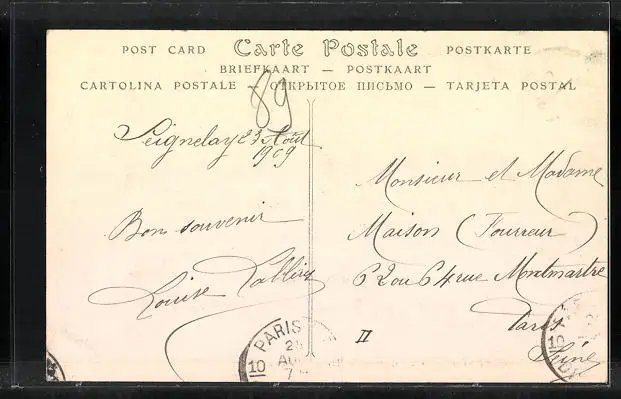 POST CARD Carte Postale POSTKARTE
BRIEFKAART — POSTKAART
CARTOLINA POSTALE — ОТКРЫТОЕ ПИСЬМО — TARJETA POSTAL
89
Seignelay 23 Août
1909
Bon souvenir
Louise
Monsieur et Madame
Maison (Fourreur)
62 ou 64 rue Montmartre
Paris
Seine
II
PARIS
10
10